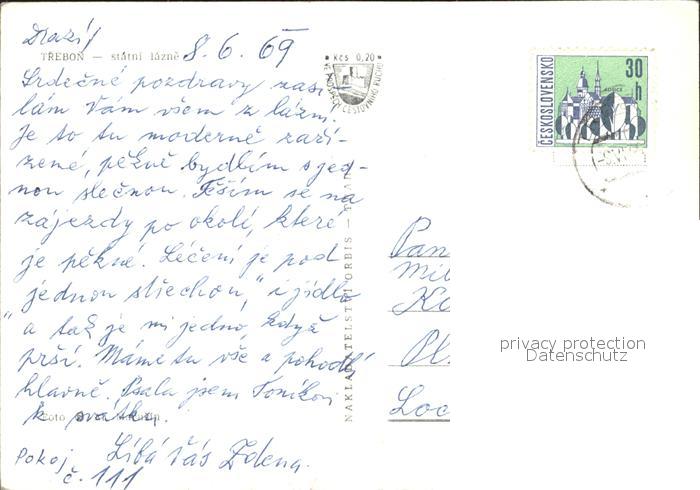 Drazí!
TŘEBOŇ — státní lázně 8. 6. 69
Srdečné pozdravy zasí-
lám Vám všem z lázní.
Je to tu moderně zaří-
zené, pěkně bydlím s jed-
nou slečnou. Těším se na
zájezdy po okolí, které
je pěkné. Léčení je pod
„jednou střechou" i jídlo
a tak je mi jedno, když
prší. Máme tu vše a pohodlí
hlavně. Psala jsem Toníkovi
k svátku.
Foto
Líbá Vás Zdena.
Pokoj
č. 111
Kčs 0,20
CESTOVNÍHO RUCHU
NAKLADATELSTVÍ ORBIS —
ČESKOSLOVENSKO
30 h
KOŠICE
Pan
Mil
Ko
Pl
Loc
privacy protection
Datenschutz